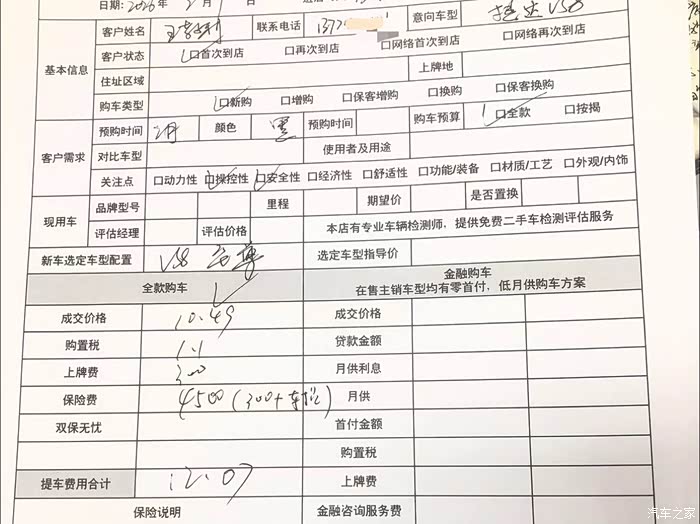 日期: 2026 年 2 月
客户姓名 联系电话 1372 意向车型 捷达VS8
基本信息
客户状态 口首次到店 口再次到店 口网络首次到店 口网络再次到店
住址区域 上牌地
购车类型 口新购 口增购 口保客增购 口换购 口保客换购
客户需求
预购时间 2月 颜色 黑 预购时间 购车预算 口全款 口按揭
对比车型 使用者及用途
关注点 口动力性 口操控性 口安全性 口经济性 口舒适性 口功能/装备 口材质/工艺 口外观/内饰
现用车
品牌型号 里程 期望价 是否置换
评估经理 评估价格 本店有专业车辆检测师，提供免费二手车检测评估服务
新车选定车型配置 VS8 选定车型指导价
全款购车 金融购车
在售主销车型均有零首付，低月供购车方案
成交价格 10.49 成交价格
购置税 1.1 贷款金额
上牌费 300 月供利息
保险费 4500 (300+车损) 月供
双保无忧 首付金额
购置税
提车费用合计 12.07 上牌费
保险说明 金融咨询服务费
汽车之家